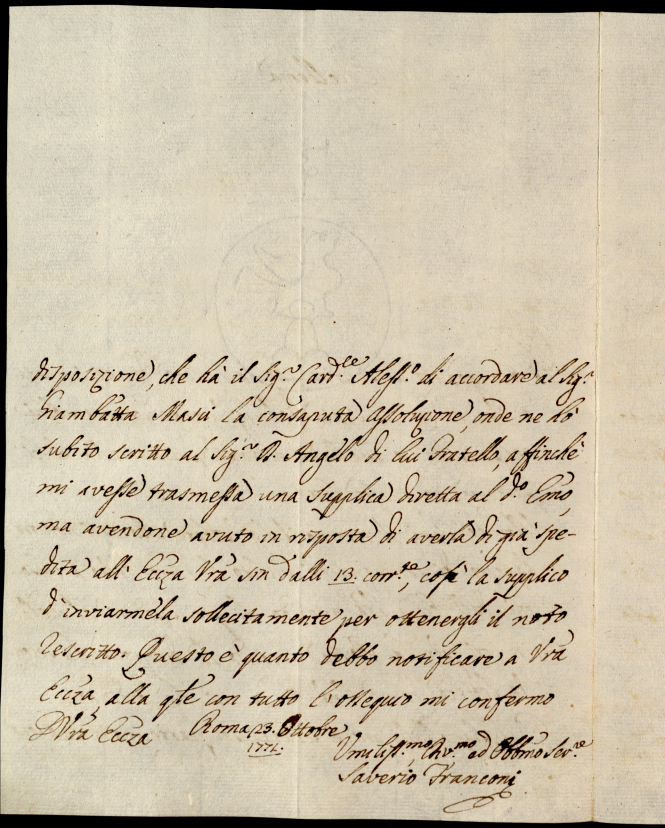 disposizione, che hà il Sig.r Card.le Aless.o di accordare al Sig.r
Giambatta Masii la consaputa assoluzione, onde ne hò
subito scritto al Sig.r D. Angelo di lui Fratello, affinchè
mi avesse trasmessa una supplica diretta al d.o Emo,
ma avendone avuto in risposta di averla di già spe-
dita all' Eccza Vrã sin dalli 13. corr.te, così la supplico
d' inviarmela sollecitamente per ottenergli il noto
Rescritto. Questo è quanto debbo notificare a Vrã
Eccza, alla qle con tutto l'ossequio mi confermo
D Vrã Eccza Roma 23. Ottobre
1771.
Umiliss.mo, Dev.mo ed Obbmo Ser.re
Saverio Franconi